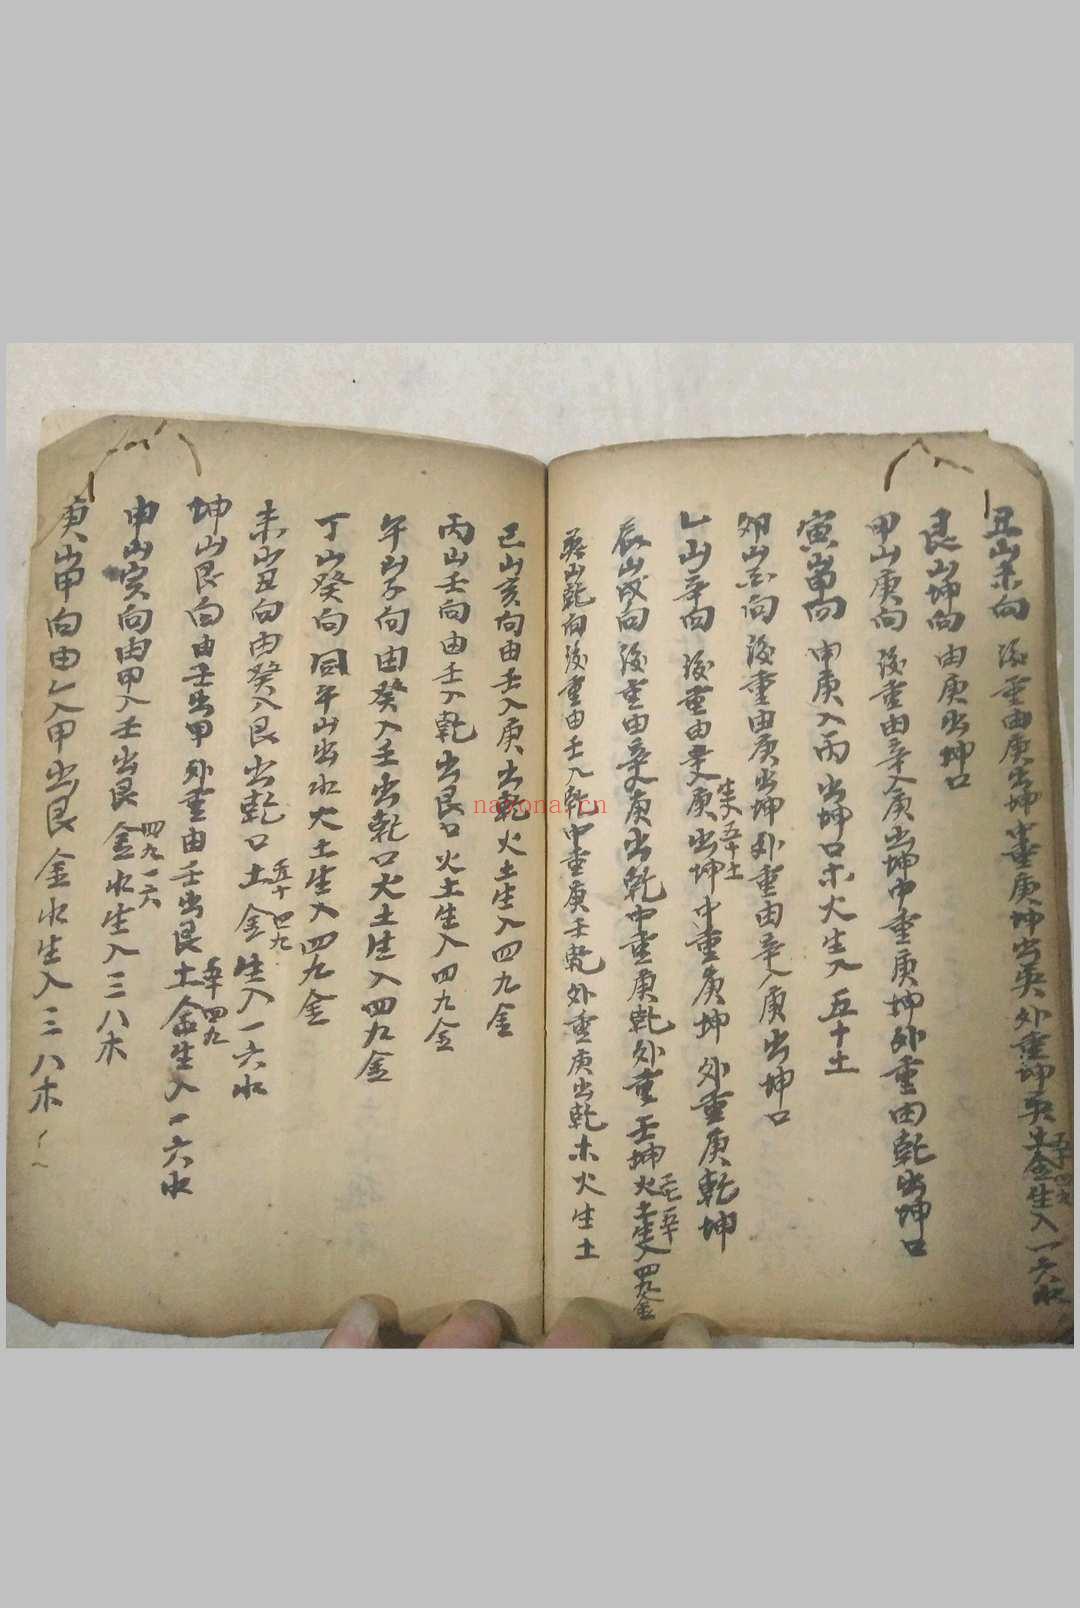 丑山未向 後重由庚出坤中重庚坤出巽外重坤巽土金生入一六水
五十 四九
艮山坤向 由庚出坤口
甲山庚向 後重由辛入庚出坤中重庚坤外重由乾出坤口
寅山申向 由庚入丙出坤口木火生入五十土
卯山酉向 後重由庚出坤外重由辛入庚出坤口
乙山辛向 後重由入庚出坤中重庚坤外重庚乾坤
五十土
辰山戌向後重由辛入庚出乾中重庚乾外重壬坤火土生入四九金
巽山乾向後重由壬入乾中重庚壬乾外重庚出乾木火生土
巳山亥向由壬入庚出乾火土生入四九金
丙山壬向由壬入乾出艮口火土生入四九金
午山子向由癸入壬出乾口火土生入四九金
丁山癸向同午山出水火土生入四九金
未山丑向由癸入艮出乾口土金生入一六水
五十 四九
坤山艮向由壬出甲外重由壬出艮土金生入一六水
五十 四九
申山寅向由甲入壬出艮金水生入三八木
四九 一六
庚山甲向由乙入甲出艮金水生入三八木
nayona.cn